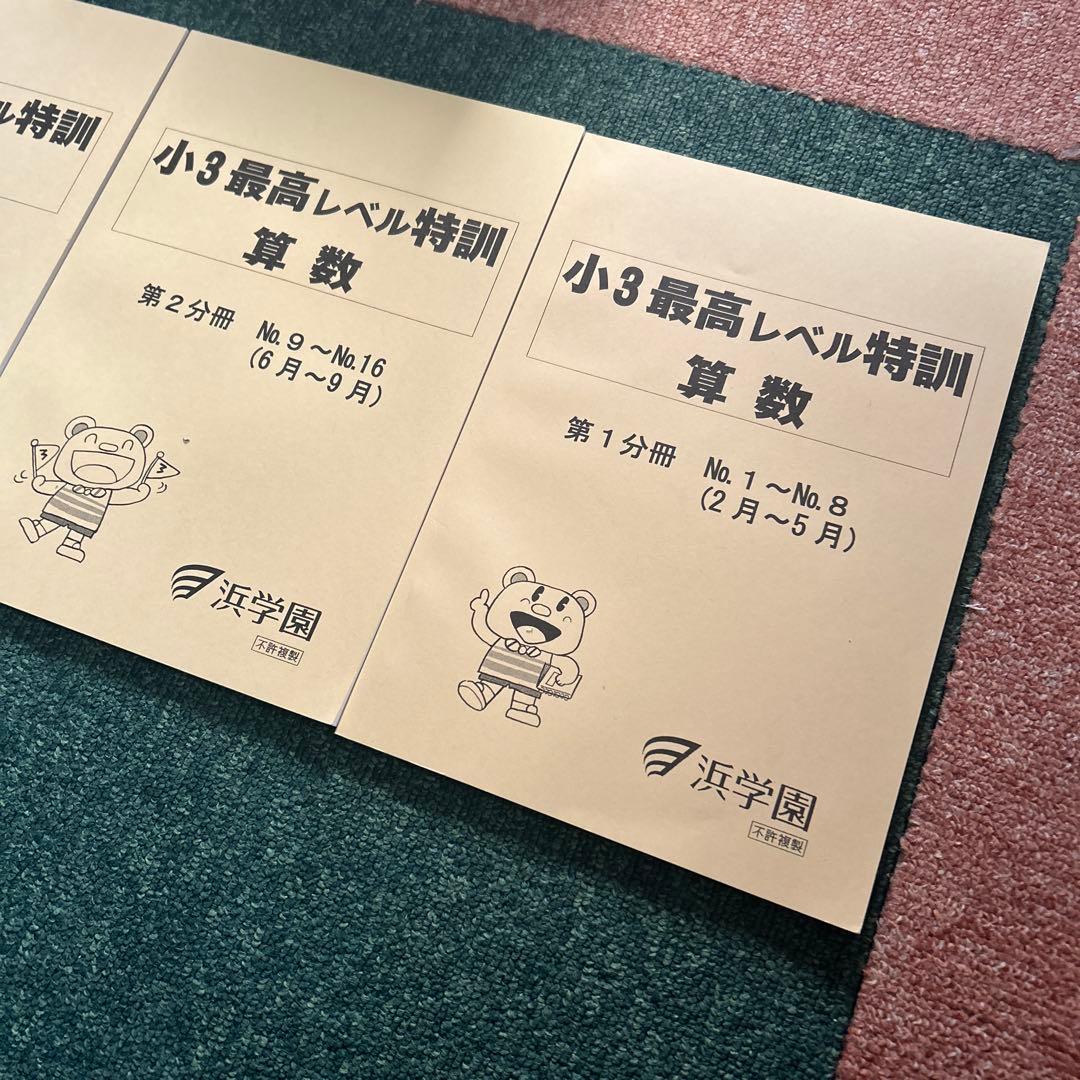 ル特訓
小3最高レベル特訓
算数
第2分冊 No.9～No.16
(6月～9月)
3
3
浜学園
不許複製
小3最高レベル特訓
算数
第1分冊 No.1～No.8
(2月～5月)
浜学園
不許複製